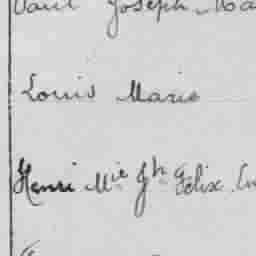 Paul Joseph Ma
Louis Marie
Henri Mie Jh Félix